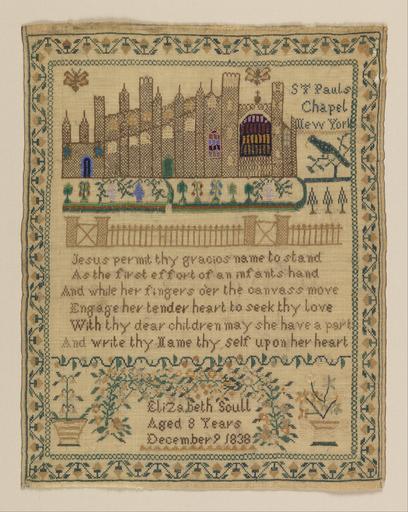 ST Pauls
Chapel
New York
Jesus permit thy gracios name to stand
As the first effort of an infants hand
And while her fingers oer the canvass move
Engage her tender heart to seek thy love
With thy dear children may she have a part
And write thy Name thy self upon her heart
Elizabeth Soull
Aged 8 Years
December 9 1838